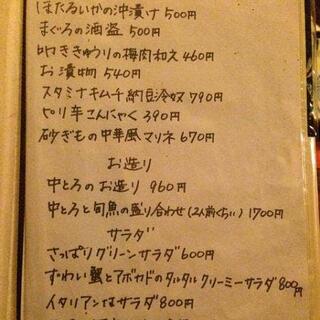 ほたるいかの沖漬け 500円
まぐろの酒盗 500円
叩ききゅうりの梅肉和え 460円
お漬物 540円
スタミナキムチ納豆冷奴 790円
ピリ辛こんにゃく 390円
砂ぎもの中華風マリネ 670円
お造り
中とろのお造り 960円
中とろと旬魚の盛り合わせ(2人前ぐらい) 1700円
サラダ
さっぱりグリーンサラダ 600円
ずわい蟹とアボカドのタルタルクリーミーサラダ 800円
イタリアンなサラダ 800円